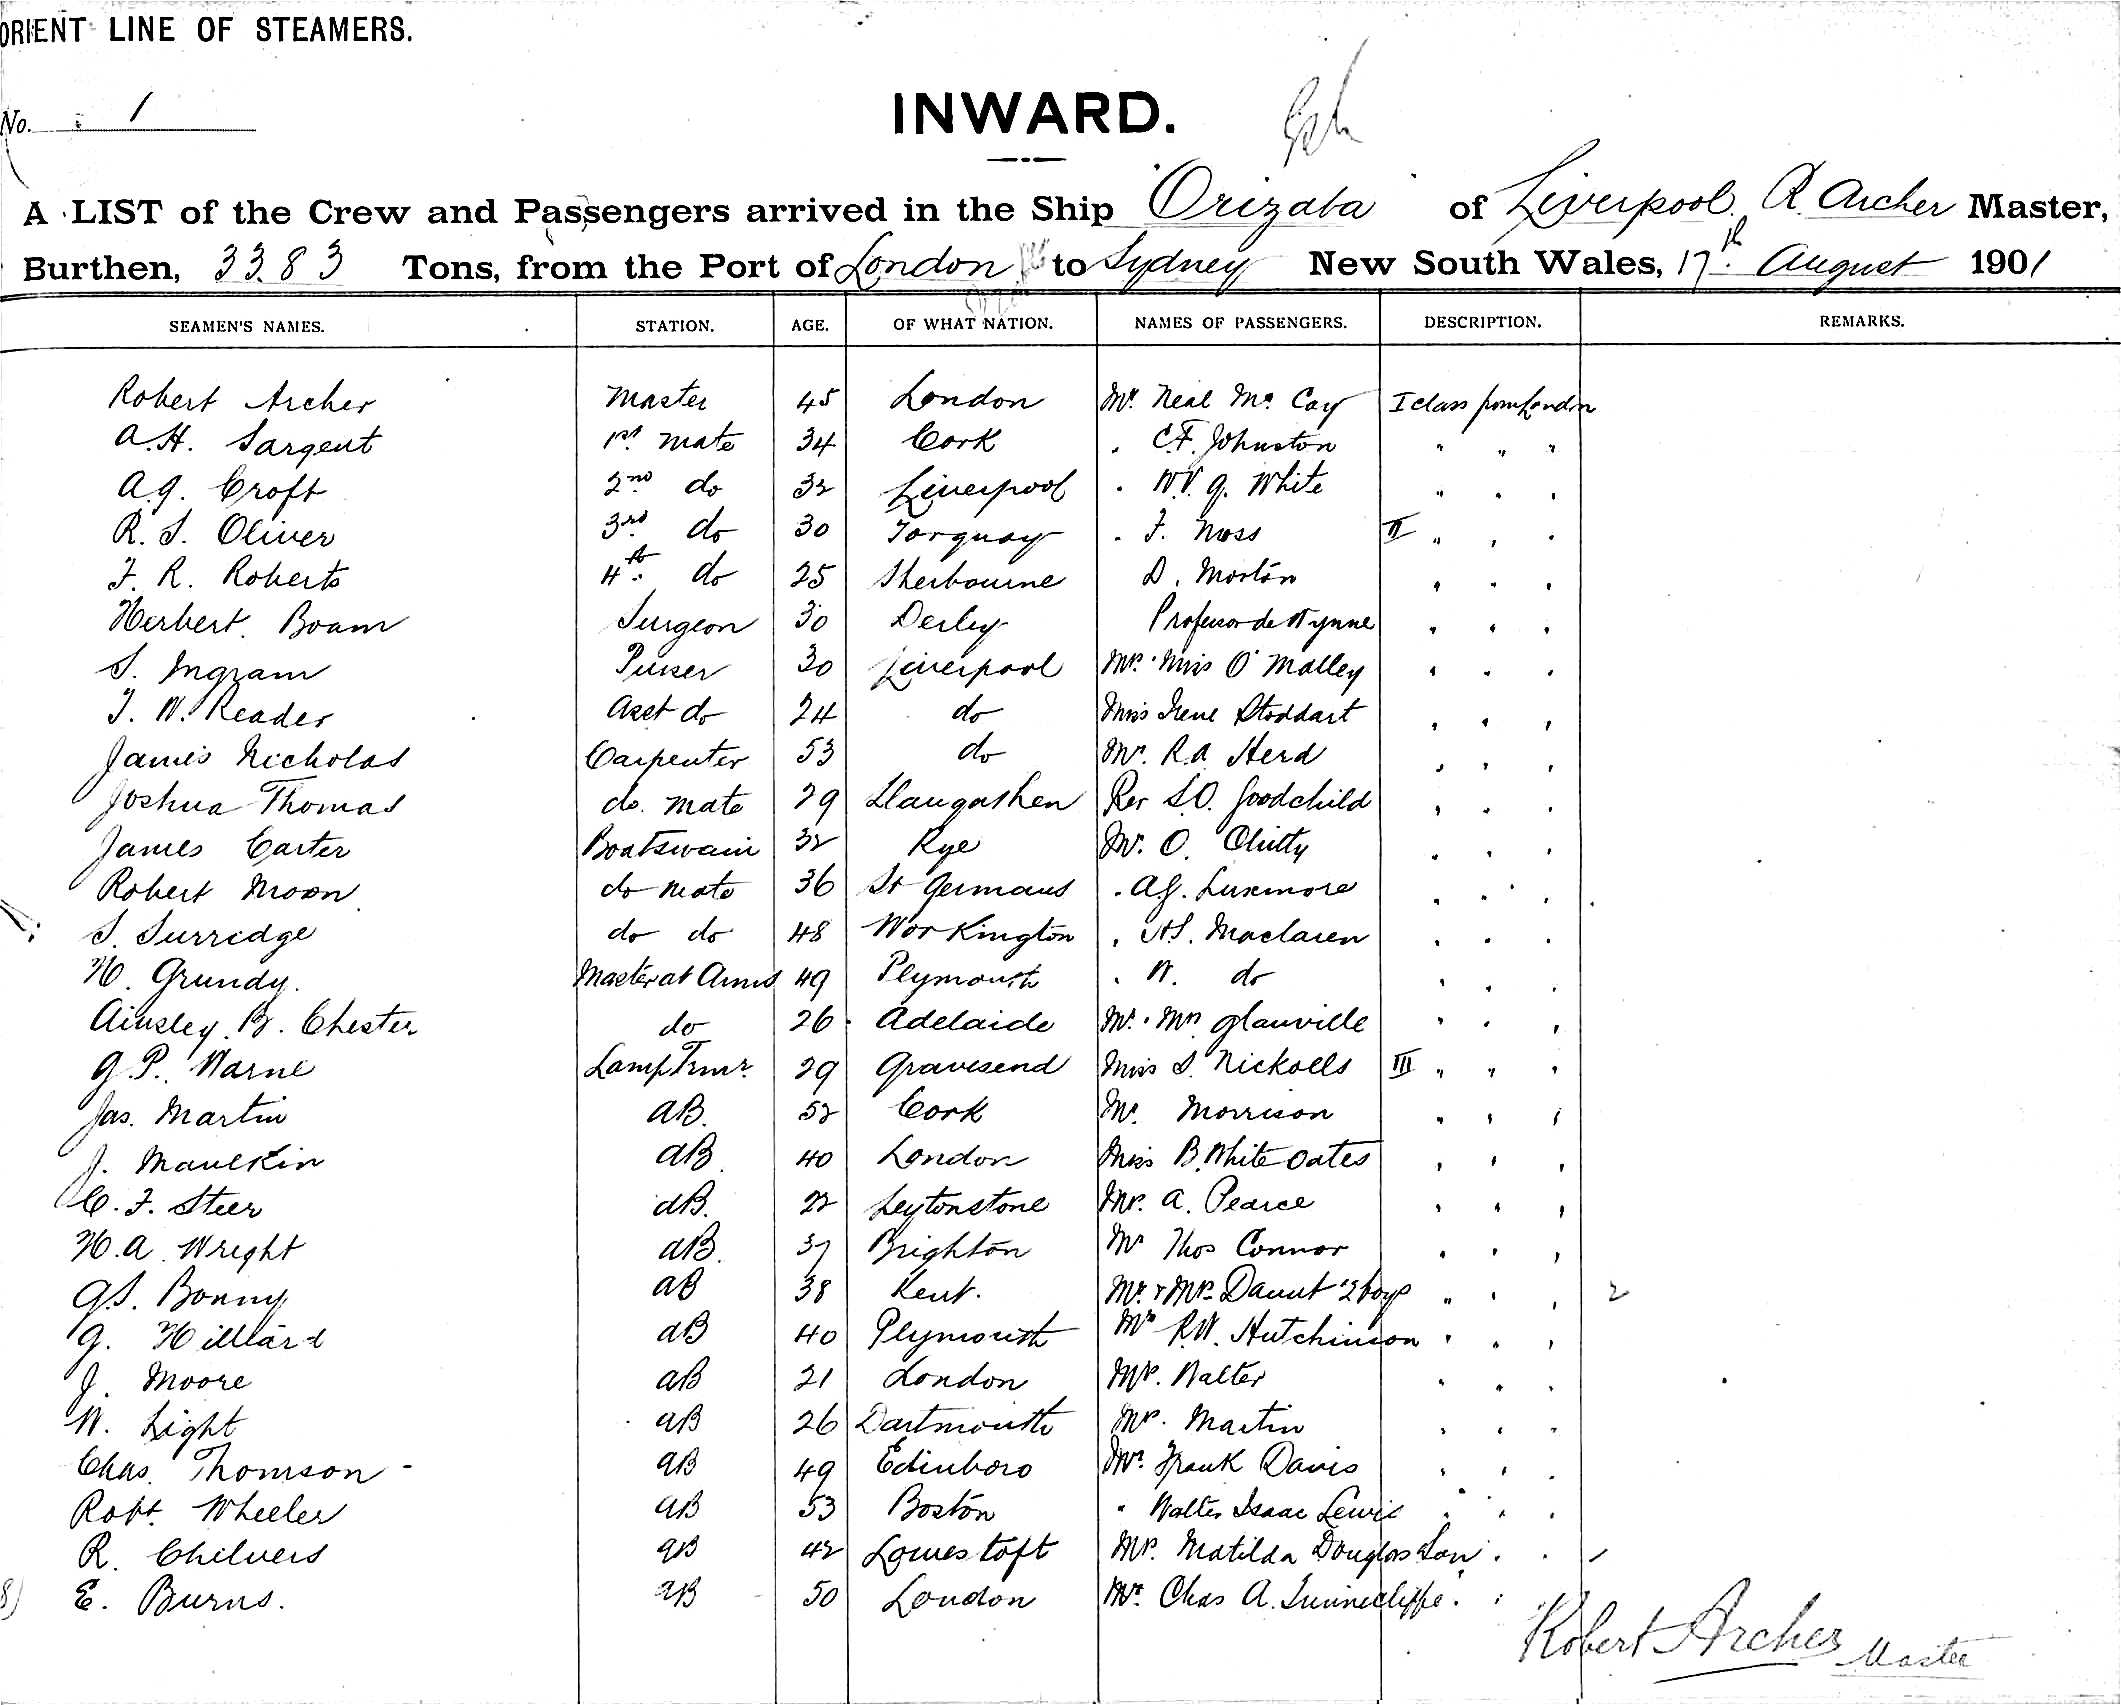 ORIENT LINE OF STEAMERS.
No. 1
INWARD.
A LIST of the Crew and Passengers arrived in the Ship Orizaba of Liverpool. R. Archer Master,
Burthen, 3383 Tons, from the Port of London to Sydney New South Wales, 17th August 1901
SEAMEN'S NAMES. STATION. AGE. OF WHAT NATION. NAMES OF PASSENGERS. DESCRIPTION. REMARKS.
Robert Archer Master 45 London Mr. Neal Mc Cay I class from London
A.H. Sargent 1st mate 34 Cork . C.F. Johnston " " "
A.G. Croft 2nd do 32 Liverpool . W.V. G. White " " "
R. S. Oliver 3rd do 30 Torquay . F. Noss II " " "
F. R. Roberts 4th. do 25 Sherbourne D. Morton " " "
Herbert Boam Surgeon 30 Derby Professor de Wynne " " "
S. Ingram Purser 30 Liverpool Mrs. Miss O'Malley " " "
T. W. Reader Asst do 24 do Miss Irene Stoddart " " "
James Nicholas Carpenter 53 do Mr. R.A. Herd " " "
Joshua Thomas do. mate 29 Llaugashen Rev S.O. Goodchild " " "
James Carter Boatswain 32 Rye Mr. O. Chitty " " "
Robert Moon do mate 36 St Germans . A.J. Luxmore " " "
S. Surridge do do 48 Workington . Maclaren " " "
W. Grundy. Master at Arms 49 Plymouth . W. do " " "
Ainsley B. Chester do 26 Adelaide Mr. Mrs Glanville " " "
G.P. Warne Lamp Trmr. 29 Gravesend Miss S. Nickolls III " " "
Jas. Martin AB. 52 Cork Mr. Morrison " " "
J. Maulkin AB 40 London Miss B. White Oates " " "
C. F. Steer AB. 22 Leytonstone Mr. A. Pearce " " "
H.A. Wright AB. 37 Brighton Mr Thos Connor " " "
G.S. Bonny AB 38 Kent. Mr. & Mrs. Daunt 2 boys " " " 2
G. Hillard AB 40 Plymouth Mr R.W. Hutchinson " " "
J. Moore AB 21 London Mr. Walter " " "
W. Light AB 26 Dartmouth Mr. Martin " " "
Chas. Thomson AB 49 Edinboro Mr. Frank Davis " " "
Robt. Wheeler AB 53 Boston " Walter Isaac Lewis " " "
R. Chilvers AB 42 Lowestoft Mrs. Matilda Douglas & Son " "
E. Burns. AB 50 London Mr. Chas A. Tunnecliffe " "
Robert Archer Master